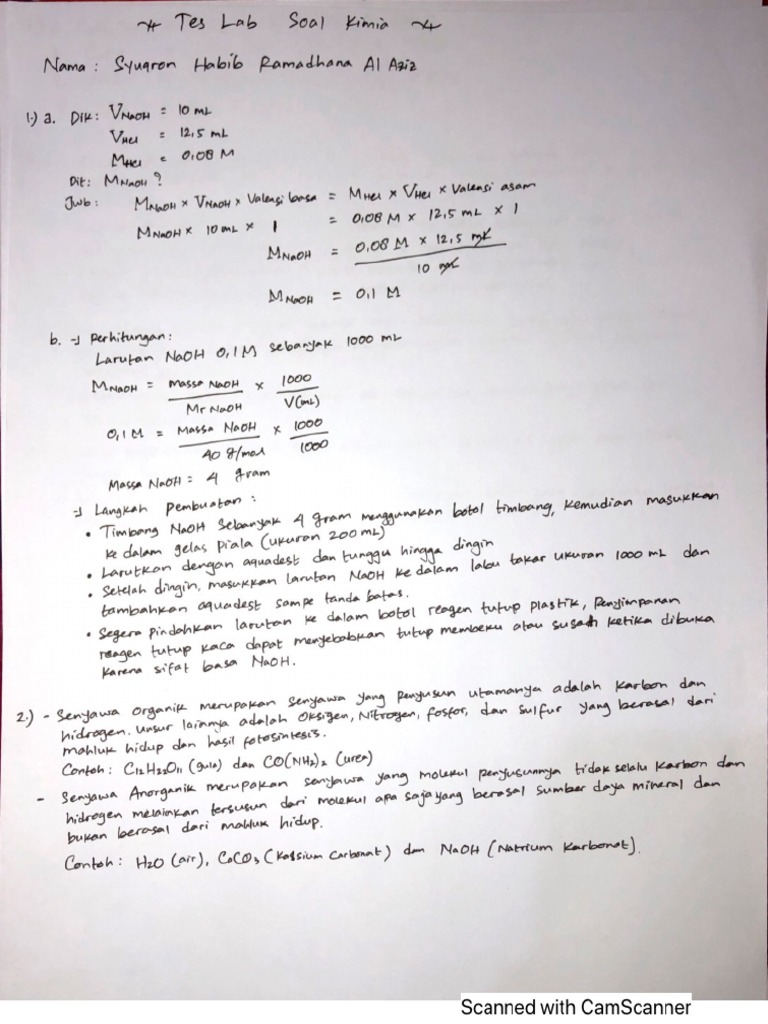 Tes Lab Soal Kimia
Nama : Syuqron Habib Ramadhana Al Aziz
1.) a. Dik : VNaOH = 10 mL
VHCl = 12,5 mL
MHCl = 0,08 M
Dit : MNaOH ?
Jwb : MNaOH x VNaOH x Valensi basa = MHCl x VHCl x Valensi asam
MNaOH x 10 mL x 1 = 0,08 M x 12,5 mL x 1
MNaOH = 0,08 M x 12,5 mL
10 mL
MNaOH = 0,1 M
b. → Perhitungan :
Larutan NaOH 0,1 M sebanyak 1000 mL
MNaOH = Massa NaOH x 1000
Mr NaOH V(mL)
0,1 M = Massa NaOH x 1000
40 g/mol 1000
Massa NaOH = 4 gram
→ Langkah Pembuatan :
• Timbang NaOH sebanyak 4 gram menggunakan botol timbang, kemudian masukkan
ke dalam gelas piala (ukuran 200 mL)
• Larutkan dengan aquadest dan tunggu hingga dingin
• Setelah dingin, masukkan larutan NaOH ke dalam labu takar ukuran 1000 mL dan
tambahkan aquadest sampe tanda batas.
• Segera pindahkan larutan ke dalam botol reagen tutup plastik, Penyimpanan
reagen tutup kaca dapat menyebabkan tutup membeku atau susah ketika dibuka
karena sifat basa NaOH.
2.) - Senyawa organik merupakan senyawa yang penyusun utamanya adalah karbon dan
hidrogen. Unsur lainnya adalah Oksigen, Nitrogen, fosfor, dan sulfur yang berasal dari
mahluk hidup dan hasil fotosintesis.
Contoh : C12H22O11 (gula) dan CO(NH2)2 (urea)
- Senyawa Anorganik merupakan senyawa yang molekul penyusunnya tidak selalu karbon dan
hidrogen melainkan tersusun dari molekul apa saja yang berasal sumber daya mineral dan
bukan berasal dari mahluk hidup.
Contoh : H2O (air), CaCO3 (Kalsium Carbonat) dan NaOH (Natrium Karbonat).
Scanned with CamScanner